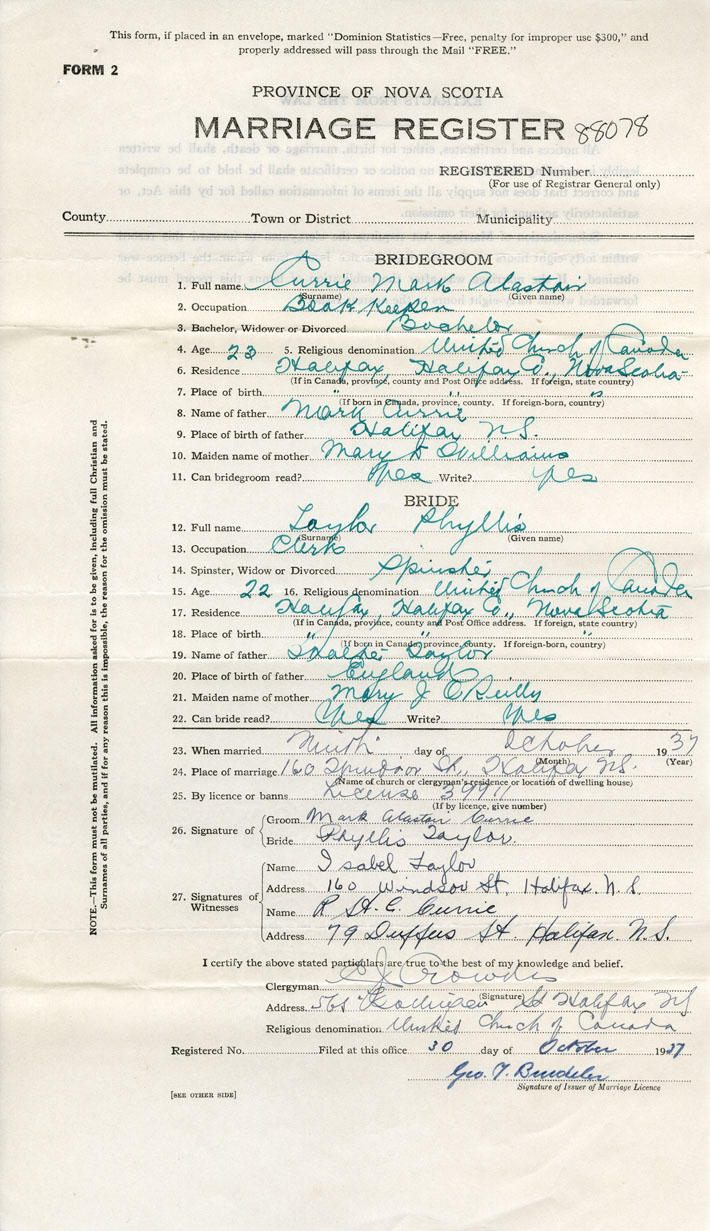 This form, if placed in an envelope, marked "Dominion Statistics—Free, penalty for improper use $300," and
properly addressed will pass through the Mail "FREE."
FORM 2
PROVINCE OF NOVA SCOTIA
MARRIAGE REGISTER 88078
REGISTERED Number
(For use of Registrar General only)
County Town or District Municipality
BRIDEGROOM
1. Full name Currie Mark Alastair
(Surname) (Given name)
2. Occupation Book Keeper
3. Bachelor, Widower or Divorced Bachelor
4. Age 23 5. Religious denomination United Church of Canada
6. Residence Halifax, Halifax Co., Nova Scotia
(If in Canada, province, county and Post Office address. If foreign, state country)
7. Place of birth " " "
(If born in Canada, province, county. If foreign-born, country)
8. Name of father Mark Currie
9. Place of birth of father Halifax N.S.
10. Maiden name of mother Mary Williams
11. Can bridegroom read? Yes Write? Yes
BRIDE
12. Full name Taylor Phyllis
(Surname) (Given name)
13. Occupation Clerk
14. Spinster, Widow or Divorced Spinster
15. Age 22 16. Religious denomination United Church of Canada
17. Residence Halifax, Halifax Co., Nova Scotia
(If in Canada, province, county and Post Office address. If foreign, state country)
18. Place of birth " " "
(If born in Canada, province, county. If foreign-born, country)
19. Name of father Taylor
20. Place of birth of father England
21. Maiden name of mother Mary J O'Reilly
22. Can bride read? Yes Write? Yes
23. When married Ninth day of October 1937
(Month) (Year)
24. Place of marriage 160 Windsor St., Halifax N.S.
(Name of church or clergyman's residence or location of dwelling house)
25. By licence or banns License
(If by licence, give number)
26. Signature of Groom Mark Alastair Currie
Bride Phyllis Taylor.
27. Signatures of Witnesses Name Isabel Taylor
Address 160 Windsor St, Halifax. N.S.
Name R. Currie
Address 79 Duffus St. Halifax. N.S.
I certify the above stated particulars are true to the best of my knowledge and belief.
Clergyman
(Signature)
Address St Halifax NS
Religious denomination United Church of Canada
Registered No. Filed at this office 30 day of October 1937
Geo.
Signature of Issuer of Marriage Licence
[SEE OTHER SIDE]
NOTE.—This form must not be mutilated. All information asked for is to be given, including full Christian and
Surnames of all parties, and if for any reason this is impossible, the reason for the omission must be stated.